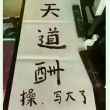 天
道
酬
操，写大了